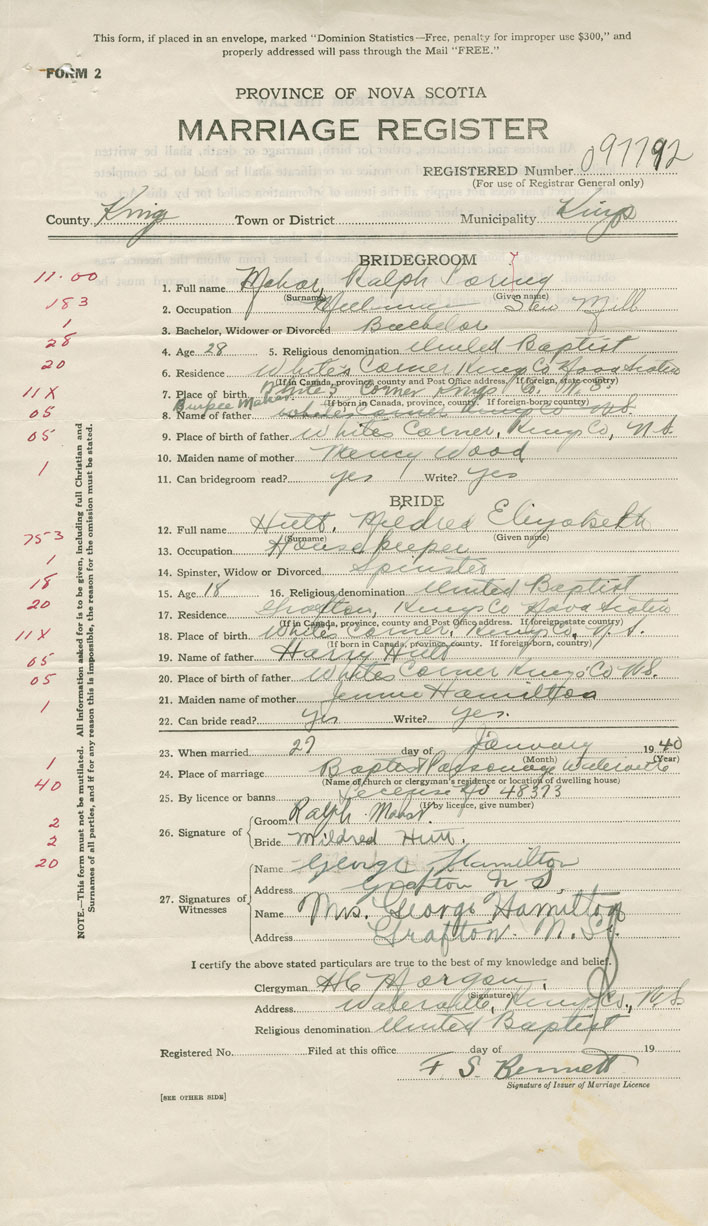 This form, if placed in an envelope, marked "Dominion Statistics—Free, penalty for improper use $300," and
properly addressed will pass through the Mail "FREE."
FORM 2
PROVINCE OF NOVA SCOTIA
MARRIAGE REGISTER
REGISTERED Number 097792
(For use of Registrar General only)
County Kings Town or District Municipality Kings
BRIDEGROOM
11.00
1. Full name Mahar, Ralph Loring
(Surname) (Given name)
183
2. Occupation Millman Saw Mill
1
3. Bachelor, Widower or Divorced Bachelor
28
4. Age 28 5. Religious denomination United Baptist
20
6. Residence Whites Corner Kings Co Nova Scotia
(If in Canada, province, county and Post Office address. If foreign, state country)
11X
7. Place of birth Whites Corner Kings Co. N.S.
(If born in Canada, province, county. If foreign-born, country)
Burpee Mahar
05
8. Name of father Whites Corner Kings Co N.S.
05
9. Place of birth of father Whites Corner, Kings Co, N.S.
10. Maiden name of mother Mency Wood
1
11. Can bridegroom read? yes Write? yes
BRIDE
12. Full name Hutt, Mildred Elizabeth
(Surname) (Given name)
753
13. Occupation Housekeeper
1
14. Spinster, Widow or Divorced Spinster
18
15. Age 18 16. Religious denomination United Baptist
20
17. Residence Grafton, Kings Co Nova Scotia
(If in Canada, province, county and Post Office address. If foreign, state country)
11X
18. Place of birth Whites Corner, Kings Co, N.S.
(If born in Canada, province, county. If foreign-born, country)
05
19. Name of father Harry Hutt
05
20. Place of birth of father Whites Corner Kings Co N.S.
1
21. Maiden name of mother Jennie Hamilton
22. Can bride read? yes Write? yes.
23. When married 27 day of January 1940
(Month) (Year)
1
24. Place of marriage Baptist Parsonage Waterville
(Name of church or clergyman's residence or location of dwelling house)
40
25. By licence or banns License No 48373
(If by licence, give number)
2
26. Signature of
Groom Ralph Mahar.
2
Bride Mildred Hutt.
20
27. Signatures of Witnesses
Name George Hamilton
Address Grafton N S.
Name Mrs. George Hamilton
Address Grafton N.S.
I certify the above stated particulars are true to the best of my knowledge and belief.
Clergyman
(Signature)
Address Waterville, Kings Co., N.S
Religious denomination United Baptist
Registered No. Filed at this office day of 19
F. S. Bennett
Signature of Issuer of Marriage Licence
[SEE OTHER SIDE]
NOTE.—This form must not be mutilated. All information asked for is to be given, including full Christian and
Surnames of all parties, and if for any reason this is impossible, the reason for the omission must be stated.